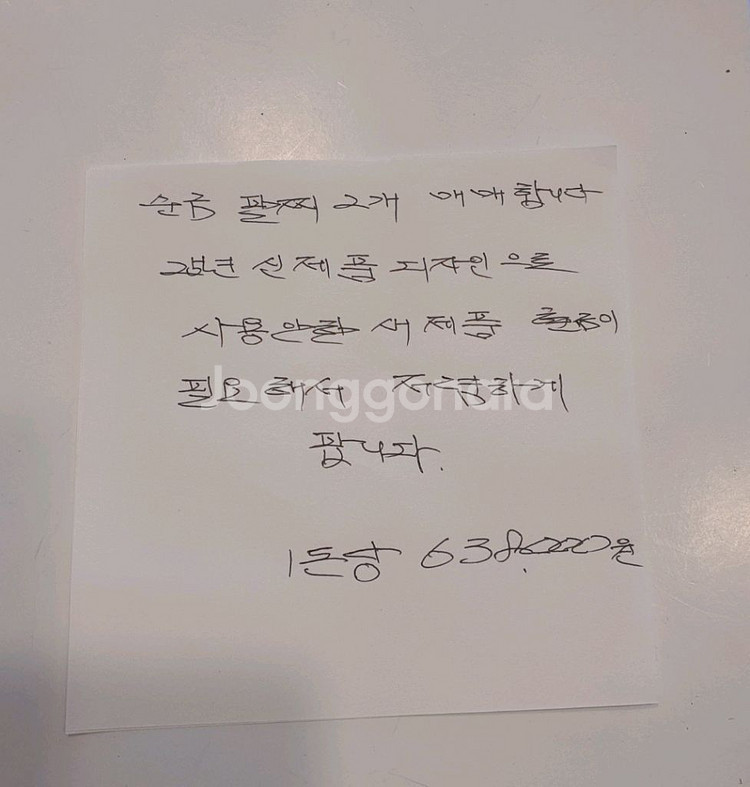 순금 팔찌 2개 매매합니다
25년 신제품 디자인으로
사용안한 새제품 현금이
필요해서 저렴하게
팝니다.
1돈당 638,000원
Joonggonara